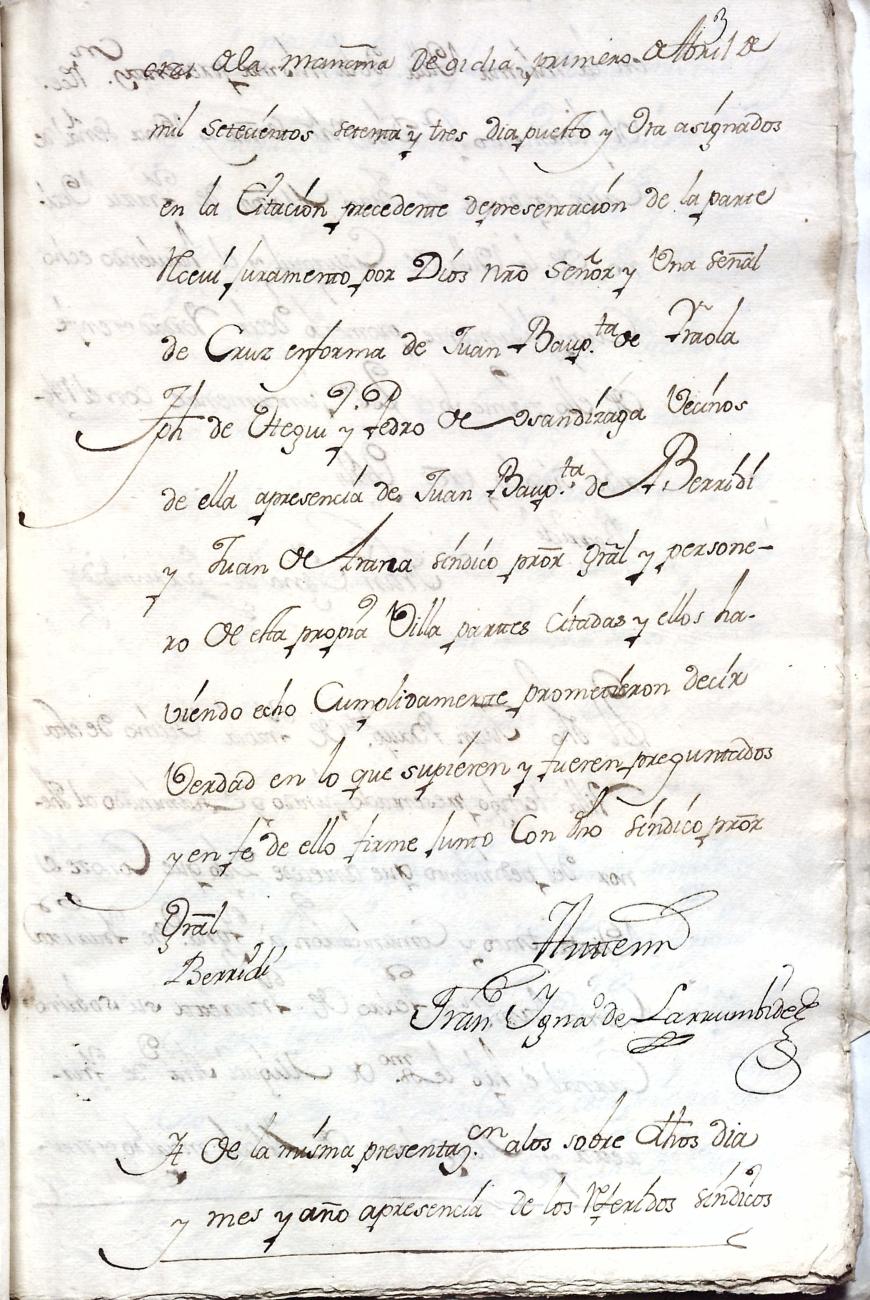 de la mañana De oi dia primero de Abril de
mil setecientos setenta y tres dia puesto y Ora asignados
en la Citación precedente depresentación de la parte
Receví Juramento por Dios nrõ Señor y Una señal
de Cruz enforma de Juan Baup.ta de
Jph de Otegui y Pedro de Osandizaga Vecinos
de ella apresencia de Juan Baup.ta de Berridi
y Juan de Arana síndico prõr grãl y persone-
ro de esta propia Villa partes citadas y ellos ha-
viendo echo Cumplidamente prometieron decir
Verdad en lo que supieren y fueren preguntados
y en fé de ello firme Junto Con dho síndico prõr
Grãl
Berridi
Antemi
Fran.co Igna.o de Larrumbide
It de la misma presentaz.on a los sobre dhos dia
y mes y año apresencia de los Referidos síndicos